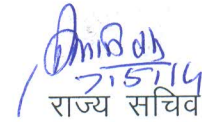 7/5/14
राज्य सचिव